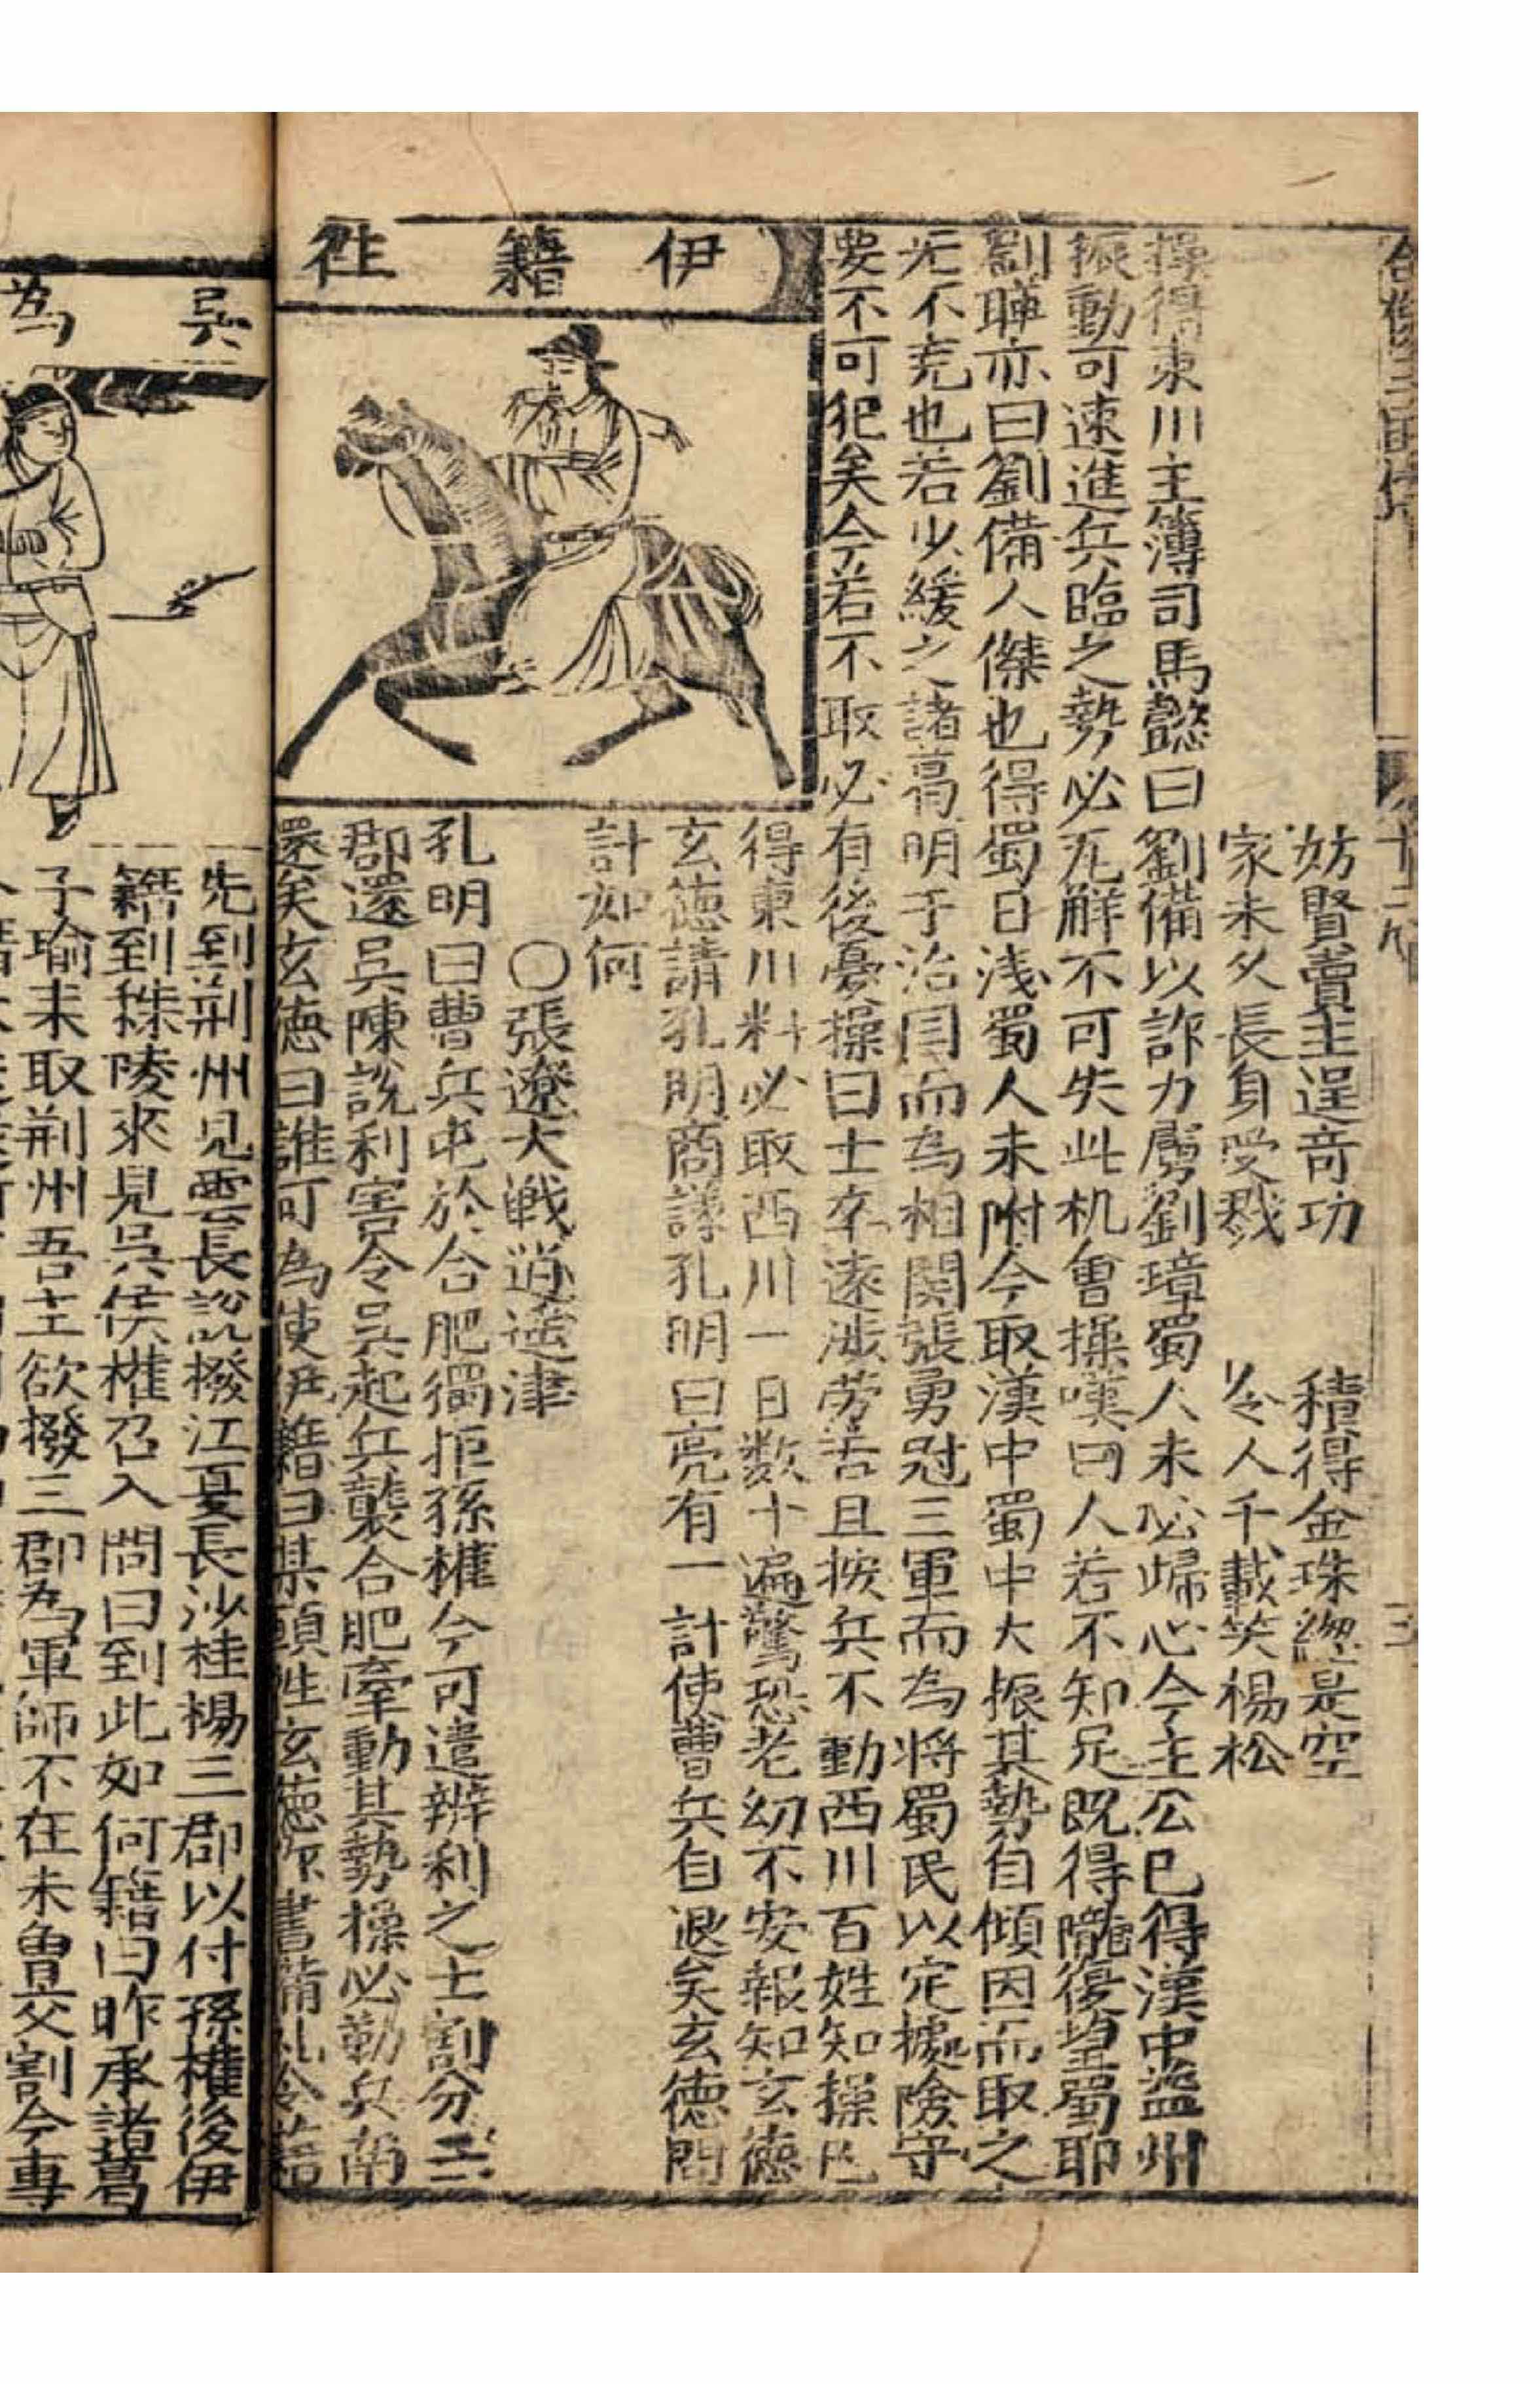 妨賢賣主逞奇功　積得金珠緫是空
家未久長身受戮　令人千載笑楊松
操得東川主簿司馬懿曰劉備以詐力虜劉璋蜀人未必歸心今主公已得漢中益州
振動可速進兵臨之勢必瓦解不可失此机會操嘆曰人若不知足既得隴復望蜀耶
劉曄亦曰劉備人傑也得蜀日浅蜀人未附今取漢中蜀中大振其勢自傾因而取之
无不克也若少緩之諸葛明于治国而為相関張勇冠三軍而為将蜀民以定據險守
要不可犯矣今若不取必有後憂操曰士卒遠涉劳苦且按兵不動西川百姓知操已
得東川料必取西川一日数十遍驚恐老幼不安報知玄德
玄德請孔明商議孔明曰亮有一計使曹兵自退矣玄德問
計如何
〇張遼大戦逍遥津
孔明曰曹兵屯於合肥獨拒孫權今可遣辨利之士割分三
郡還吳陳說利害令吳起兵襲合肥牽動其勢操必勒兵南
還矣玄德曰誰可為使伊籍曰某願往玄德修書備礼令籍
伊籍往
先到荆州見雲長說撥江夏長沙桂楊三郡以付孫權後伊
籍到秣陵來見吳侯權召入問曰到此如何籍曰昨承諸葛
子瑜未取荆州吾主欲撥三郡為軍師不在未曾交割今專
吳
為